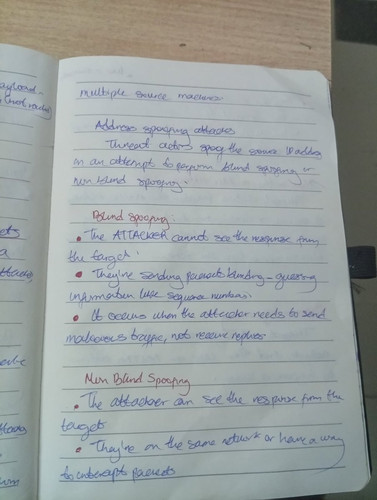 ayload-
multiple source machines
Address spoofing attacks
Threat actors spoof the source IP address
in an attempt to perform blind spoofing or
Non blind spoofing.
Blind spoofing
• The ATTACKER cannot see the response from
the target.
• They're sending packets blinding - guessing
information like sequence numbers.
• It occurs when the attacker needs to send
malicious traffic, not receive replies
Non Blind Spoofing
• The attacker can see the response from the
targets
• They're on the same network or have a way
to intercepts packets